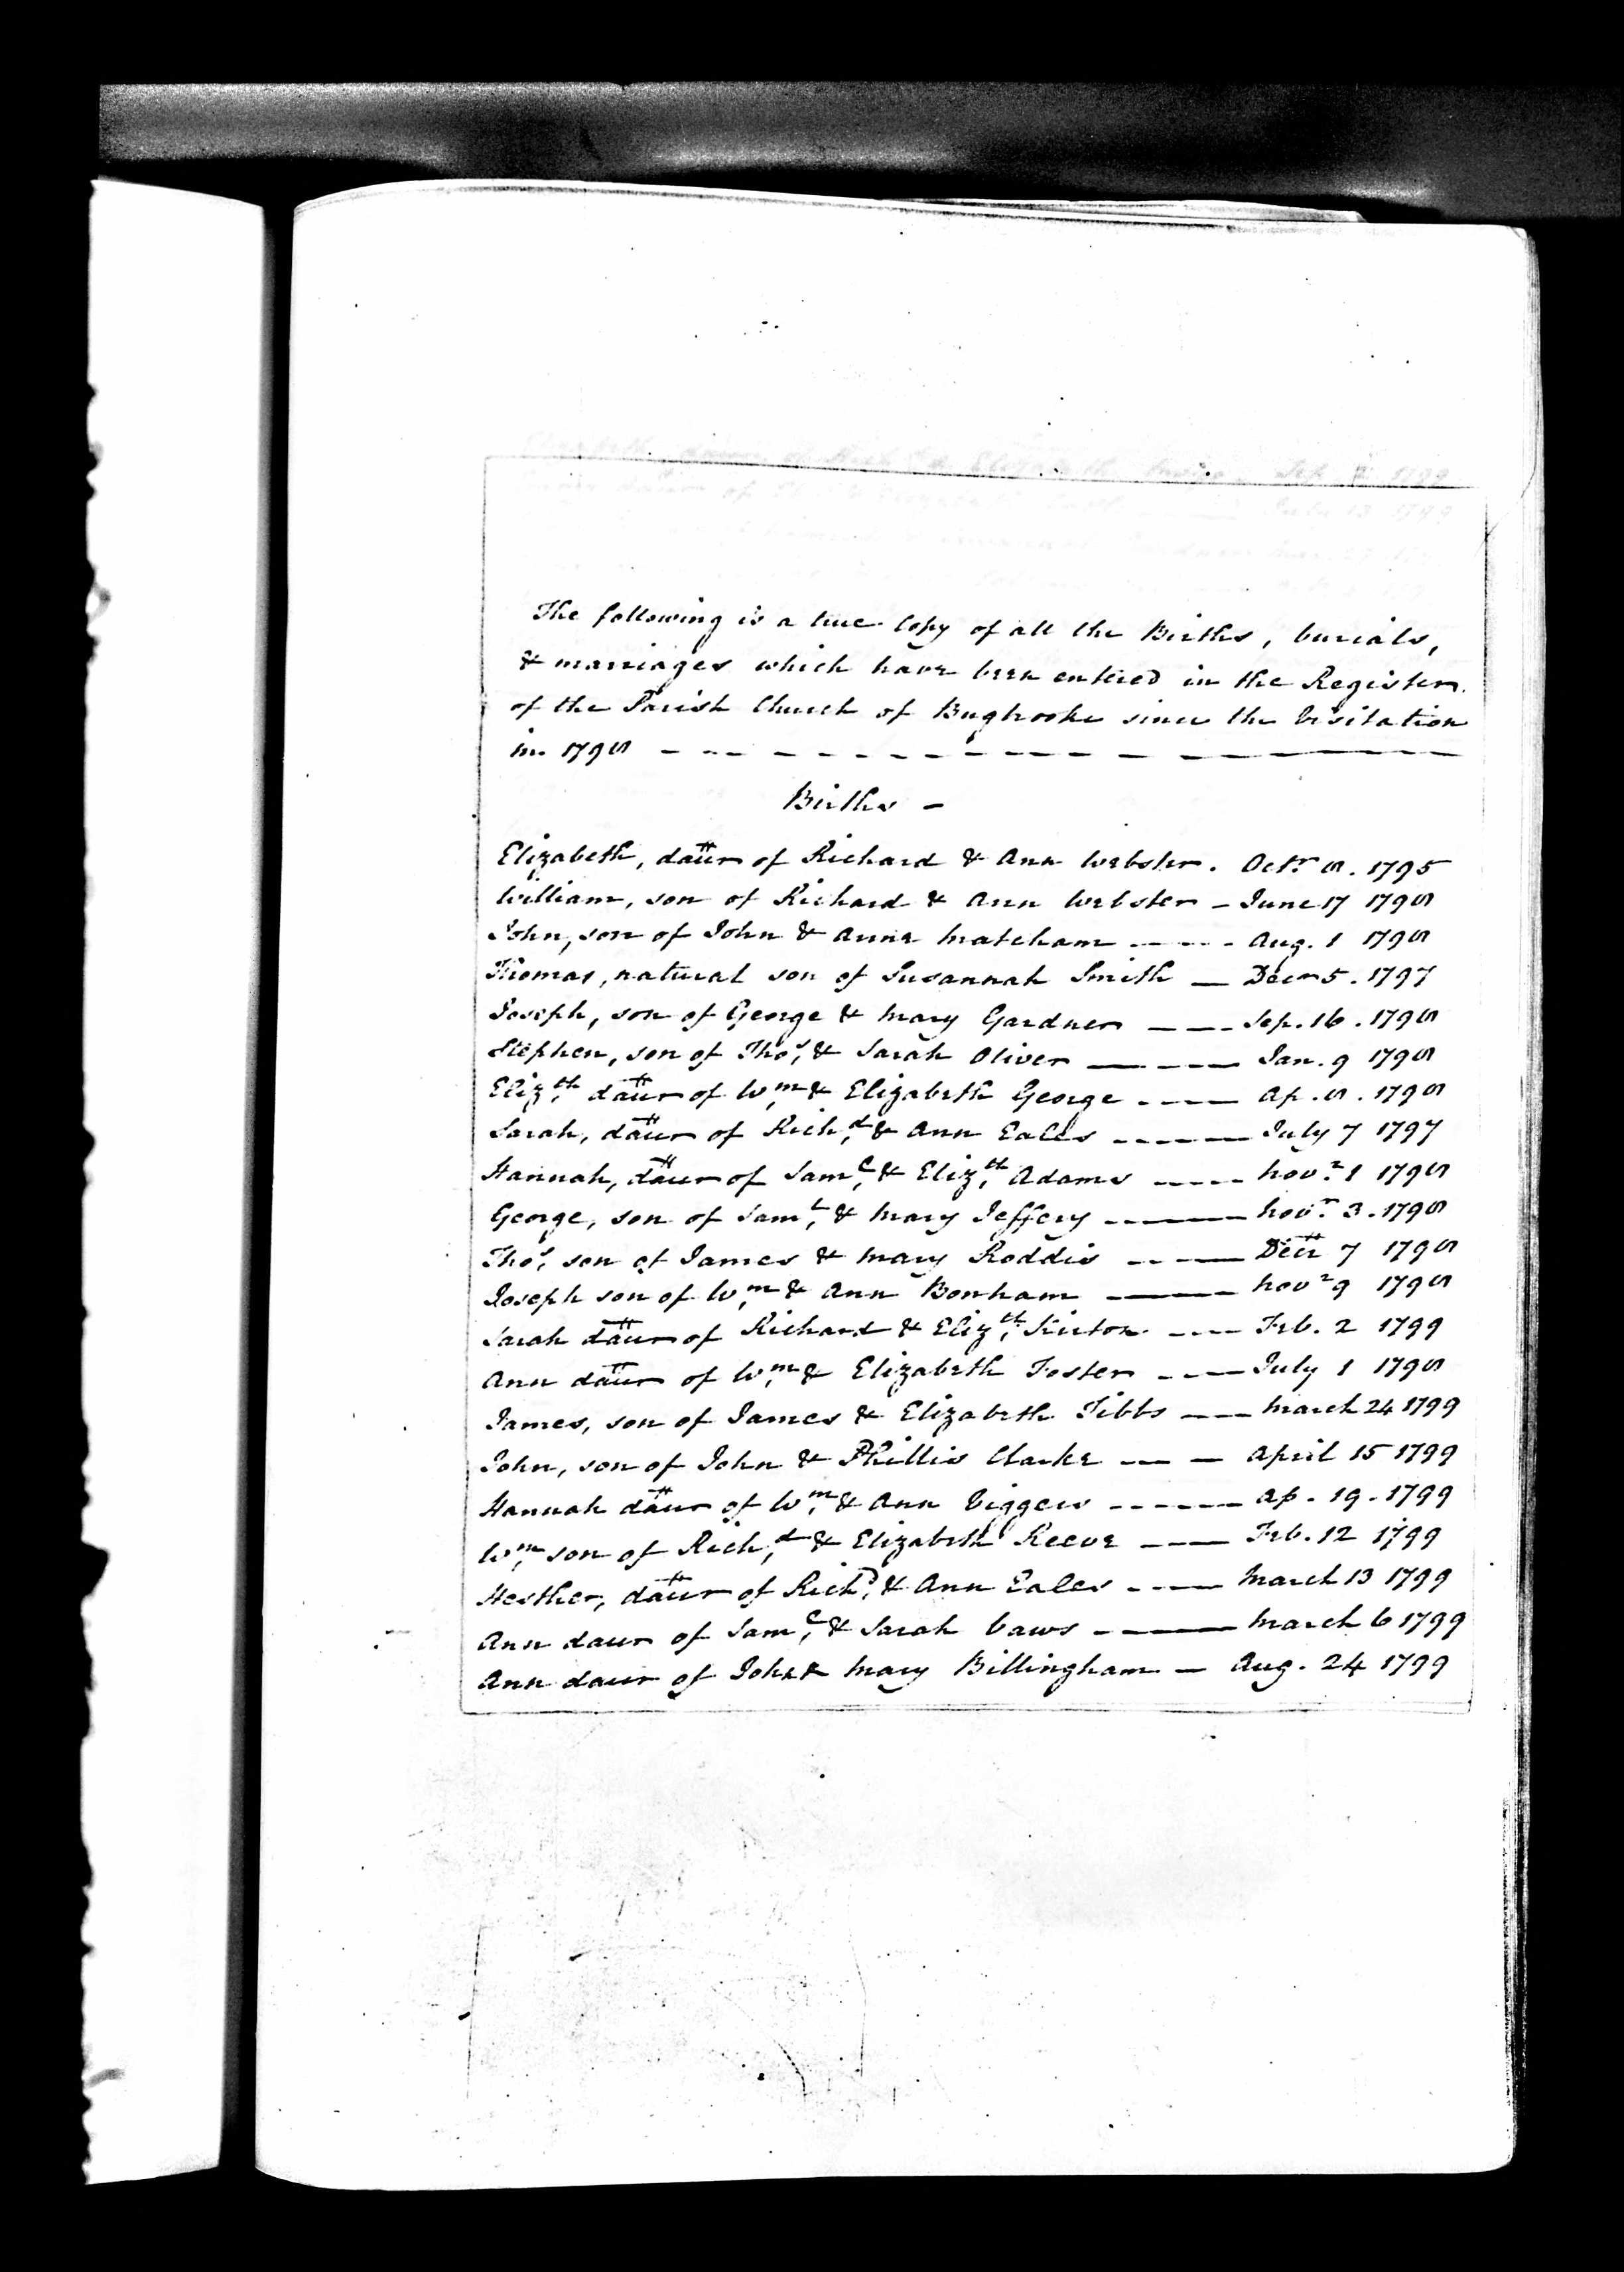 The following is a true Copy of all the Births, burials,
& marriages which have been entered in the Register
of the Parish Church of Bugbrooke since the Visitation
in 1798
Births -
Elizabeth, daur of Richard & Ann Webster. Octr 8. 1795
William, son of Richard & Ann Webster - June 17 1798
John, son of John & Anne Matcham - Aug. 1 1798
Thomas, natural son of Susannah Smith - Decr 5. 1797
Joseph, son of George & Mary Gardner - Sep. 16. 1798
Stephen, son of Thos & Sarah Oliver - Jan. 9 1798
Elizth daur of Wm & Elizabeth George - Ap. 8. 1798
Sarah, daur of Richd & Ann Eales - July 7 1797
Hannah, daur of Saml & Elizth Adams - Novr 1 1798
George, son of Saml & Mary Jeffery - Novr 3. 1798
Thos son of James & Mary Roddis - Decr 7 1798
Joseph son of Wm & Ann Bonham - Novr 9 1798
Sarah daur of Richard & Elizth Kirton - Feb. 2 1799
Ann daur of Wm & Elizabeth Foster - July 1 1798
James, son of James & Elizabeth Tibbs - March 24 1799
John, son of John & Phillis Clarke - April 15 1799
Hannah daur of Wm & Ann Viggers - Ap. 19. 1799
Wm son of Richd & Elizabeth Reeve - Feb. 12 1799
Hesther, daur of Richd & Ann Eales - March 13 1799
Ann daur of Saml & Sarah Caws - March 6 1799
Ann daur of John & Mary Billingham - Aug. 24 1799